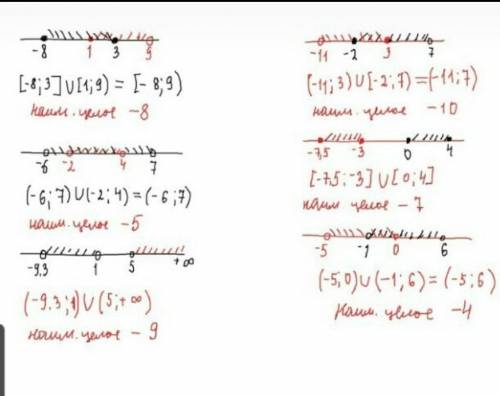 -8 1 3 9
[-8;3]∪[1;9) = [-8;9)
наим. целое -8
-6 -2 4 7
(-6;7)∪(-2;4)=(-6;7)
наим. целое -5
-9,3 1 5 +∞
(-9,3;1)∪(5;+∞)
наим. целое -9
-11 -2 3 7
(-11;3)∪[-2;7)=(-11;7)
наим. целое -10
-7,5 -3 0 4
[-7,5;-3]∪[0;4]
наим целое -7
-5 -1 0 6
(-5;0)∪(-1;6)=(-5;6)
наим. целое -4